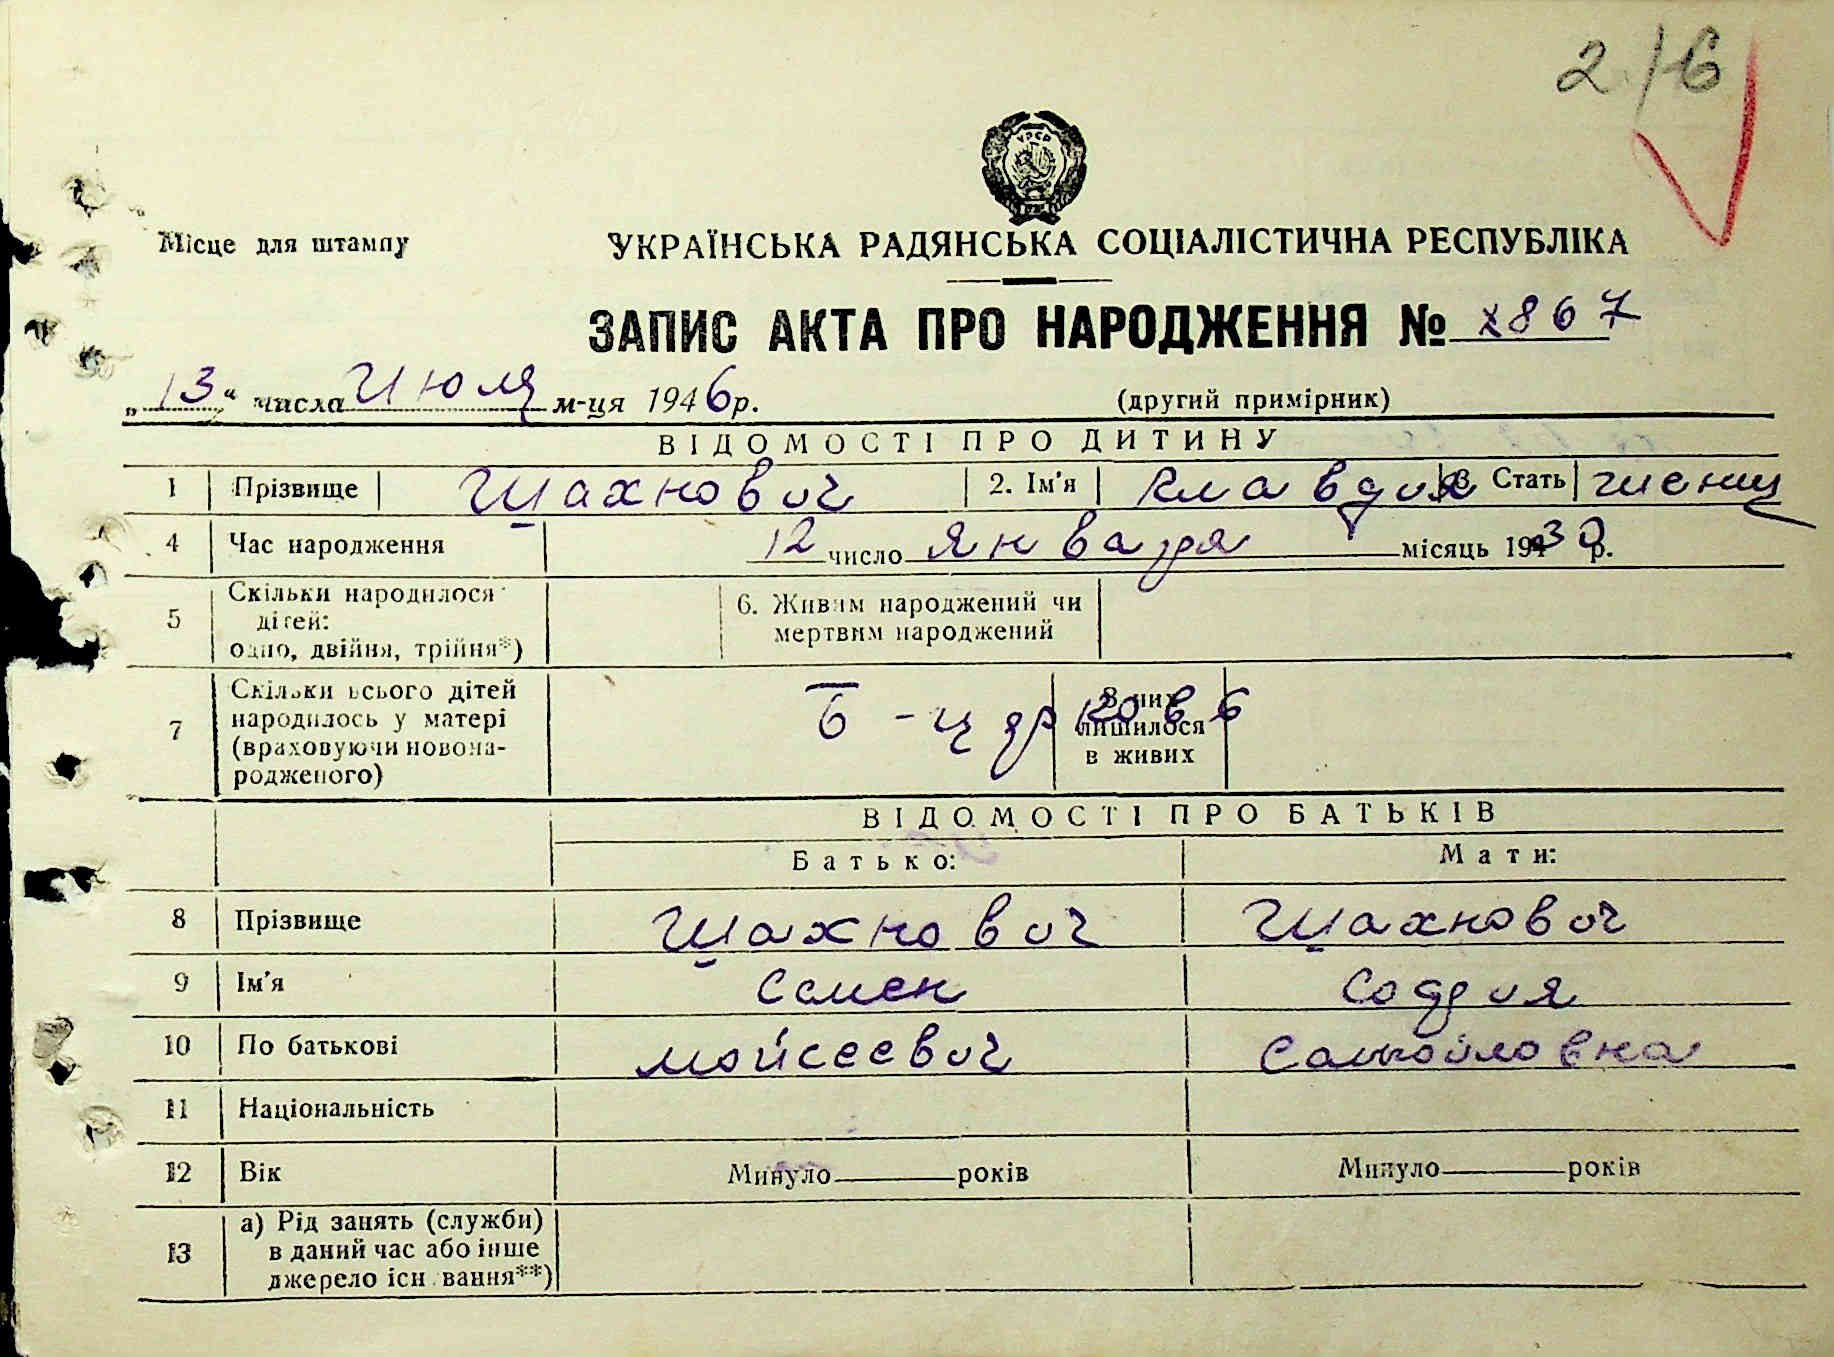 2/6
УРСР
Місце для штампу
УКРАЇНСЬКА РАДЯНСЬКА СОЦІАЛІСТИЧНА РЕСПУБЛІКА
ЗАПИС АКТА ПРО НАРОДЖЕННЯ № 867
„13“ числа Июля м-ця 1946 р. (другий примірник)
ВІДОМОСТІ ПРО ДИТИНУ
1 Прізвище Шахнович 2. Ім'я Клавдия 3 Стать женщ
4 Час народження 12 число Января місяць 1930 р.
5 Скільки народилося дітей: одно, двійня, трійня*) 6. Живим народжений чи мертвим народжений
7 Скільки всього дітей народилось у матері (враховуючи новонародженого) Б-церковь З них лишилося в живих
ВІДОМОСТІ ПРО БАТЬКІВ
Батько: Мати:
8 Прізвище Шахнович Шахнович
9 Ім'я Семен София
10 По батькові Мойсеевич Самойловна
11 Національність
12 Вік Минуло років Минуло років
13 а) Рід занять (служби) в даний час або інше джерело існування**)